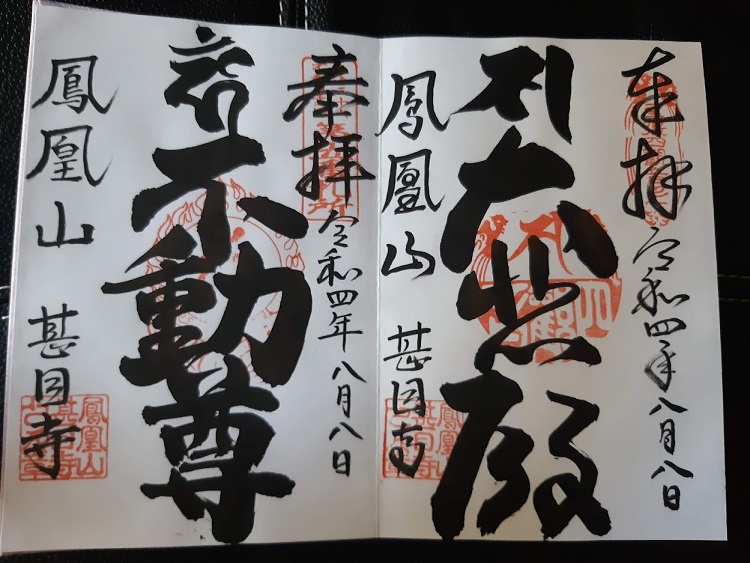 奉拝 令和四年八月八日
大悲殿
鳳凰山 甚目寺
鳳凰山
奉拝 令和四年八月八日
不動尊
鳳凰山 甚目寺
鳳凰山